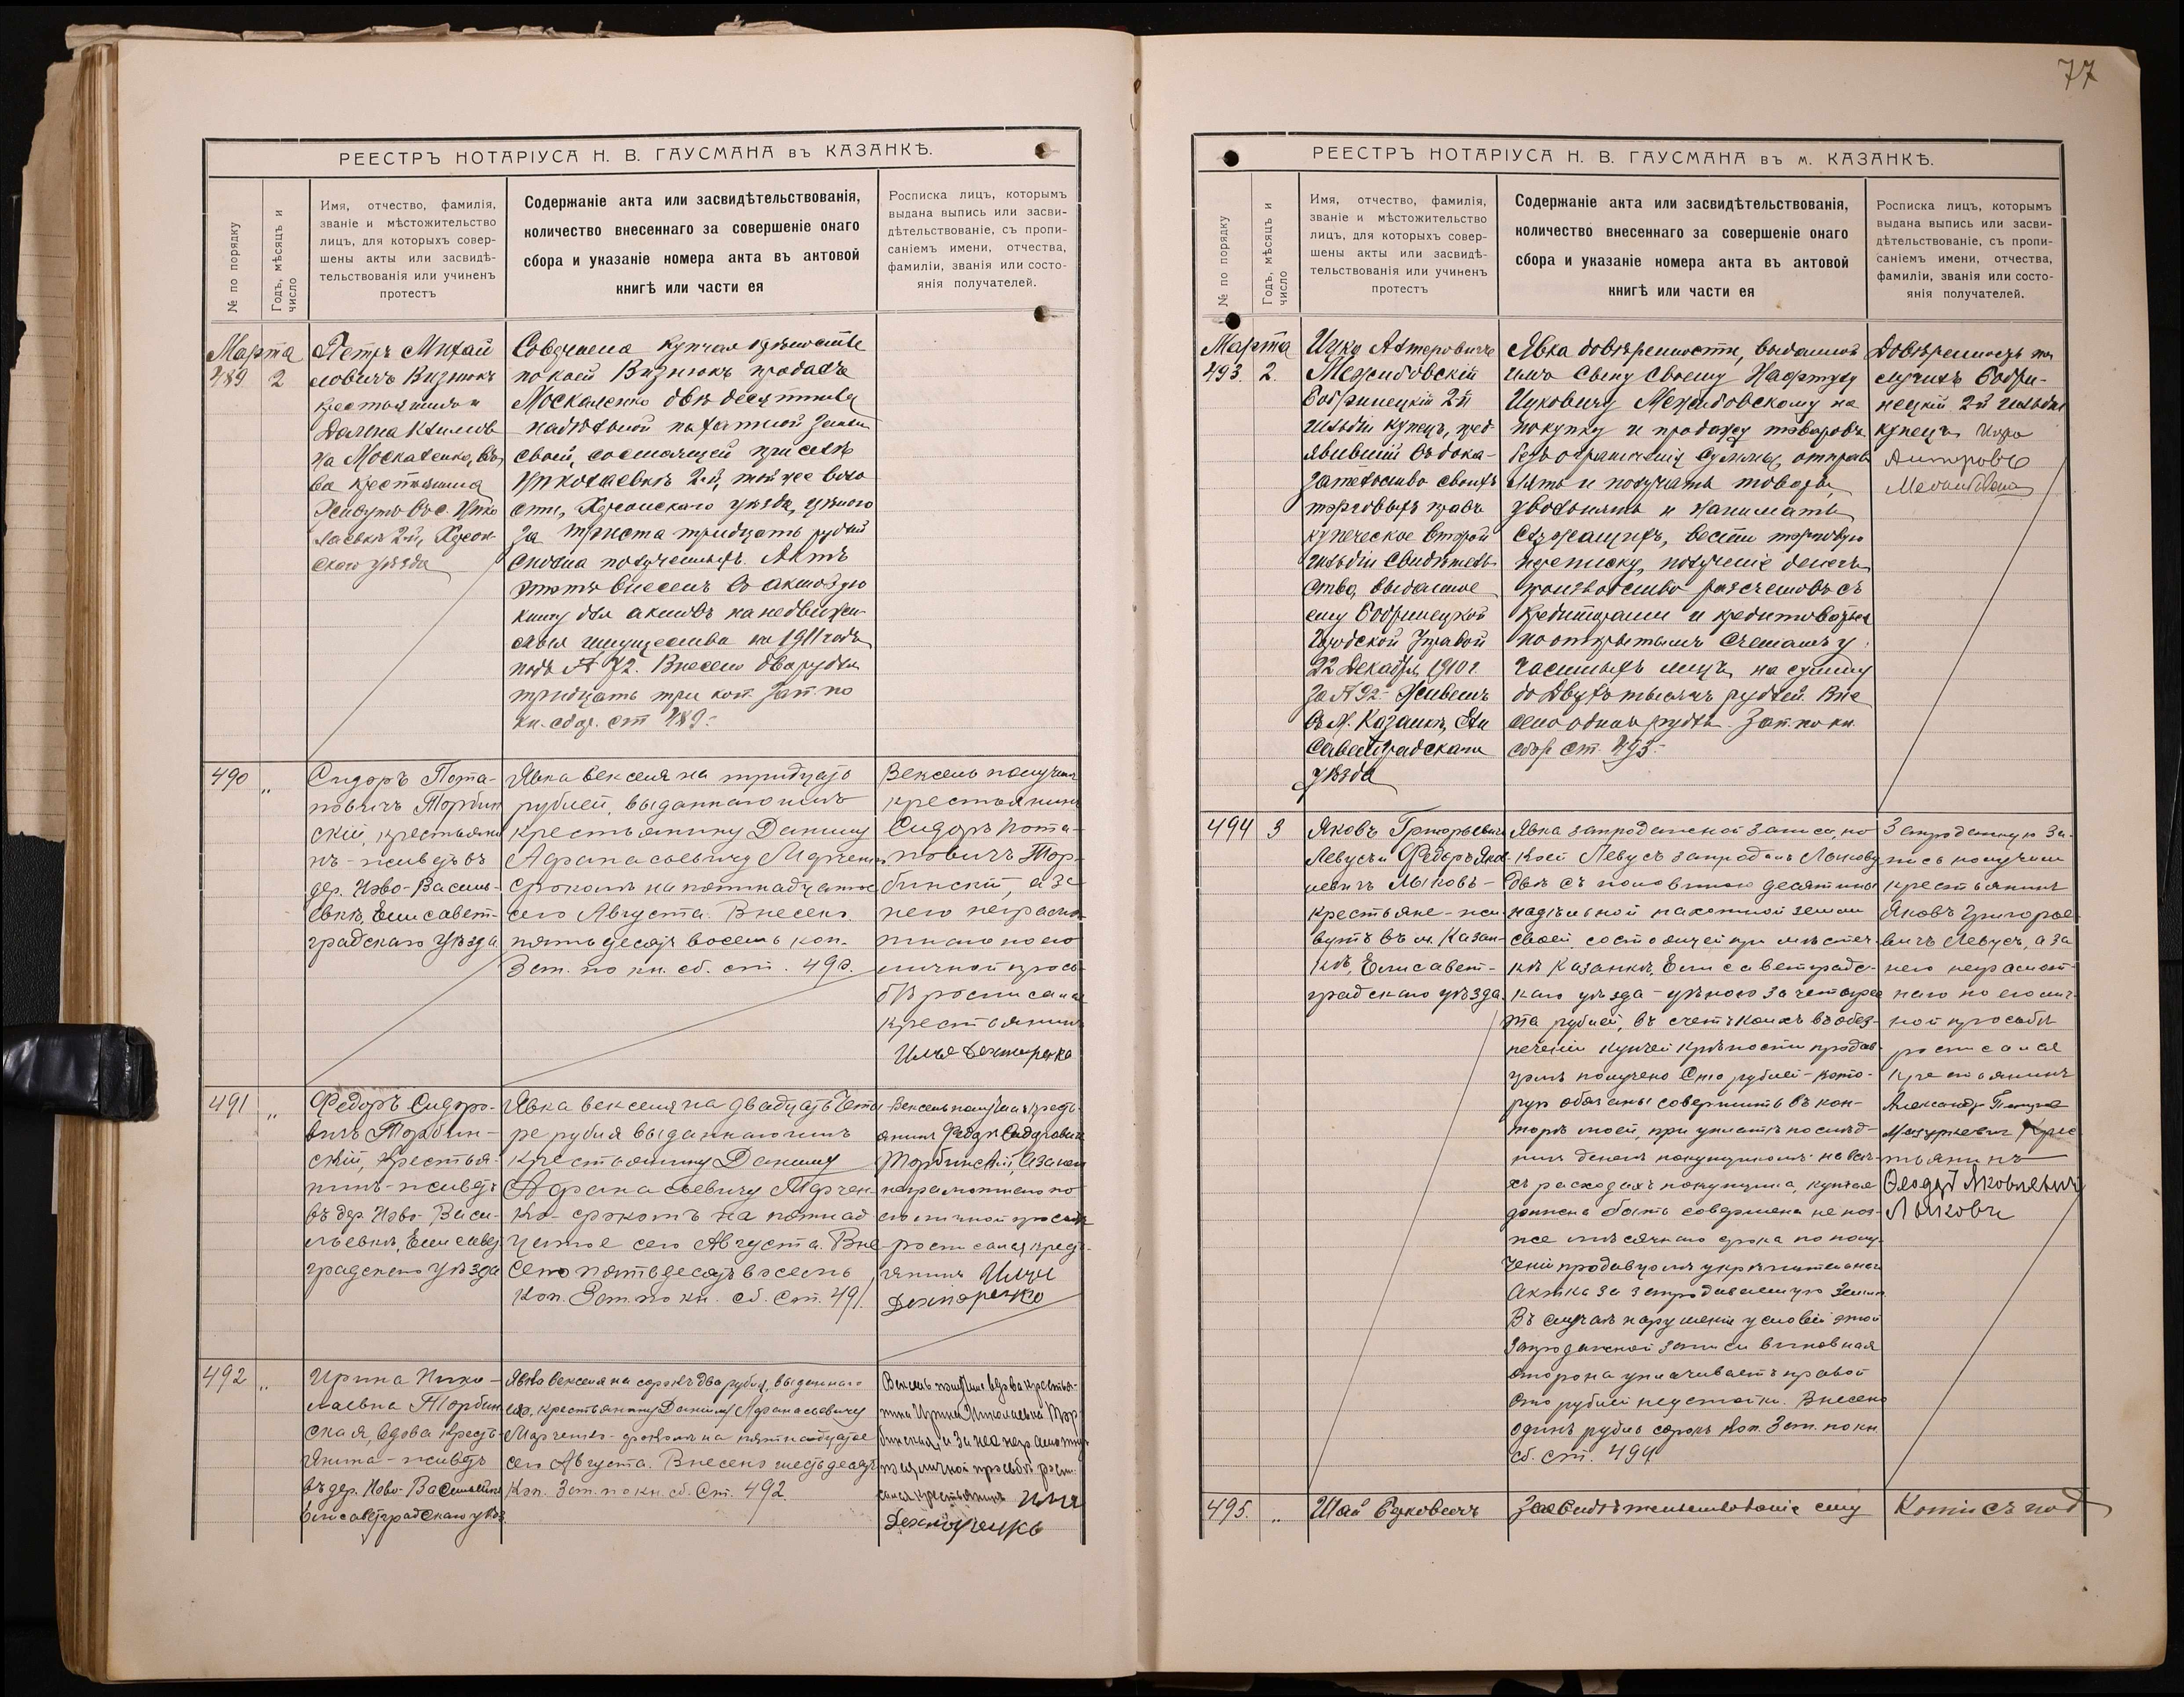 РЕЕСТРЪ НОТАРІУСА Н. В. ГАУСМАНА въ КАЗАНКѢ.
№ по порядку
Годъ, мѣсяцъ и
число
Имя, отчество, фамилія,
званіе и мѣстожительство
лицъ, для которыхъ совер-
шены акты или засвидѣ-
тельствованія или учиненъ
протестъ
Содержаніе акта или засвидѣтельствованія,
количество внесеннаго за совершеніе онаго
сбора и указаніе номера акта въ актовой
книгѣ или части ея
Росписка лицъ, которымъ
выдана выпись или засви-
дѣтельствованіе, съ пропи-
саніемъ имени, отчества,
фамиліи, званія или состо-
янія получателей.
Марта
489 2
Петръ Михай
ловичъ Визнюкъ
крестьянинъ и
на Москаленко, вдо
ва крестьянина
Живутъ въ с. Нико
лаевкѣ 2й, Херсон-
скаго уѣзда
Совершена купчая крѣпость
по коей Визнюкъ продалъ
Москаленко двѣ десятины
надѣльной пахатной земли
своей, состоящей при селѣ
Николаевкѣ 2й, той же воло
сти, Херсонскаго уѣзда, цѣною
за триста тридцать рублей
сполна полученныхъ. Актъ
этотъ внесенъ въ актовую
книгу для актовъ на недвижи-
мыя имущества на 1911 годъ
подъ № 72. Внесено два рубля
тридцать три коп. Зап. по
кн. сбор. ст 489.-
490 "
Сидоръ Пота-
повичъ Торбин
скій, крестьяни
нъ - живетъ въ
дер. Ново-Василь-
евкѣ, Елисавет-
градскаго уѣзда
Явка векселя на тридцать
рублей, выданнаго имъ
крестьянину Данилу
Афанасьевичу Марченко
срокомъ на пятнадцатое
сего Августа. Внесено
пятьдесятъ восемь коп.
Зап. по кн. сб. ст. 490.
Вексель получилъ
крестьянинъ
Сидоръ Пота-
повичъ Тор-
бинскій, а за
него неграмот
наго по его
личной прось-
бѣ росписался
крестьянинъ
Илья Дехтяренко
491 "
Федоръ Сидоро-
вичъ Торбин-
скій, крестья-
нинъ - живетъ
въ дер. Ново-Васи-
льевкѣ, Елисавет
градскаго уѣзда
Явка векселя на двадцать четы
ре рубля выданнаго имъ
крестьянину Данилу
Афанасьевичу Марчен-
ко - срокомъ на пятнад
цатое сего Августа. Вне
сено пятьдесятъ восемь
коп. Зап. по кн. сб. ст. 491.
Вексель получилъ кресть-
янинъ Федоръ Сидоровичъ
Торбинскій, а за него
неграмотнаго по
его личной просьбѣ
росписался кресть-
янинъ Илья
Дехтяренко
492 "
Ирина Нико-
лаевна Торбин
ская, вдова кресть
янина - живетъ
въ дер. Ново-Васильевкѣ
Елисаветградскаго уѣз.
Явка векселя на сорокъ два рубля, выданнаго
ею, крестьянину Данилу Афанасьевичу
Марченко - срокомъ на пятнадцатое
сего Августа. Внесено шестьдесятъ
коп. Зап. по кн. сб. ст. 492.
Вексель получила вдова крестья-
нина Ирина Николаевна Тор
бинская, и за нее неграмотную
по ея личной просьбѣ роспи-
сался крестьянинъ Илья
Дехтяренко
77
РЕЕСТРЪ НОТАРІУСА Н. В. ГАУСМАНА въ м. КАЗАНКѢ.
№ по порядку
Годъ, мѣсяцъ и
число
Имя, отчество, фамилія,
званіе и мѣстожительство
лицъ, для которыхъ совер-
шены акты или засвидѣ-
тельствованія или учиненъ
протестъ
Содержаніе акта или засвидѣтельствованія,
количество внесеннаго за совершеніе онаго
сбора и указаніе номера акта въ актовой
книгѣ или части ея
Росписка лицъ, которымъ
выдана выпись или засви-
дѣтельствованіе, съ пропи-
саніемъ имени, отчества,
фамиліи, званія или состо-
янія получателей.
Марта
493. 2.
Межибовскій
Бобринецкій 2й
гильдіи купецъ, пред
явившій въ дока-
зательство своихъ
торговыхъ правъ
купеческое второй
гильдіи свидѣтель
ство, выданное
ему Бобринецкой
Городской Управой
22 Декабря 1910 г.
за № 92 - Живетъ
въ м. Казанкѣ, Ели
саветградскаго
уѣзда
Явка довѣренности, выданной
имъ сыну своему
Межибовскому на
покупку и продажу товаровъ
безъ ограниченія суммы, отправ
лять и получать товары,
увольнять и нанимать
служащихъ, вести торговую
переписку, полученіе денегъ
производство разсчетовъ съ
кредиторами и кредитоваться
по открытымъ счетамъ у
частныхъ лицъ, на сумму
до двухъ тысячъ рублей. Вне
сено одинъ рубль. Зап. по кн.
сбор. ст. 493.-
Довѣренность по
лучилъ Бобри-
нецкій 2й гильдіи
купецъ
494 3
Яковъ Григорьевичъ
Левусъ и Федоръ Яков
левичъ Лыковъ -
крестьяне - жи
вутъ въ м. Казан-
кѣ, Елисавет-
градскаго уѣзда.
Явка запродажной записи, по
коей Левусъ запродалъ Лыкову
двѣ съ половиною десятины
надѣльной пахотной земли
своей, состоящей при мѣстеч-
кѣ Казанкѣ, Елисаветградс-
каго уѣзда - цѣною за четырес
та рублей, въ счетъ коихъ въ обез-
печеніи купчей крѣпости продав
цомъ получено сто рублей - кото-
рую обязаны совершить въ кон-
торѣ моей, при уплатѣ послѣд-
нихъ денегъ покупщикомъ - на всѣ-
хъ расходахъ покупщика, купчая
должна быть совершена не поз-
же мѣсячнаго срока по полу-
ченіи продавцомъ укрѣпительнаго
акта на запродаваемую землю.
Въ случаѣ нарушенія условій этой
запродажной записи виновная
сторона уплачиваетъ правой
сто рублей неустойки. Внесено
одинъ рубль сорокъ коп. Зап. по кн.
сб. ст. 494
Запродажную за-
пись получили
крестьянинъ
Яковъ Григорье-
вичъ Левусъ, а за
него неграмот-
наго по его лич-
ной просьбѣ
росписался
крестьянинъ
Александръ
Крес
тьянинъ
Феодоръ Яковлевичъ
Лыковъ
495. "
Засвидѣтельствованіе ему
Копію съ под